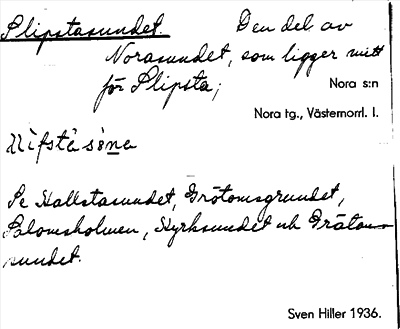 Slipstasundet. Den del av
Norasundet, som ligger mitt
för Slipsta;
Nora s:n
Nora tg., Västernorrl. l.
Se Hallstasundet, Grötomsgrundet,
Salomsholmen, Kyrksundet och Gråtom-
sundet.
Sven Hiller 1936.